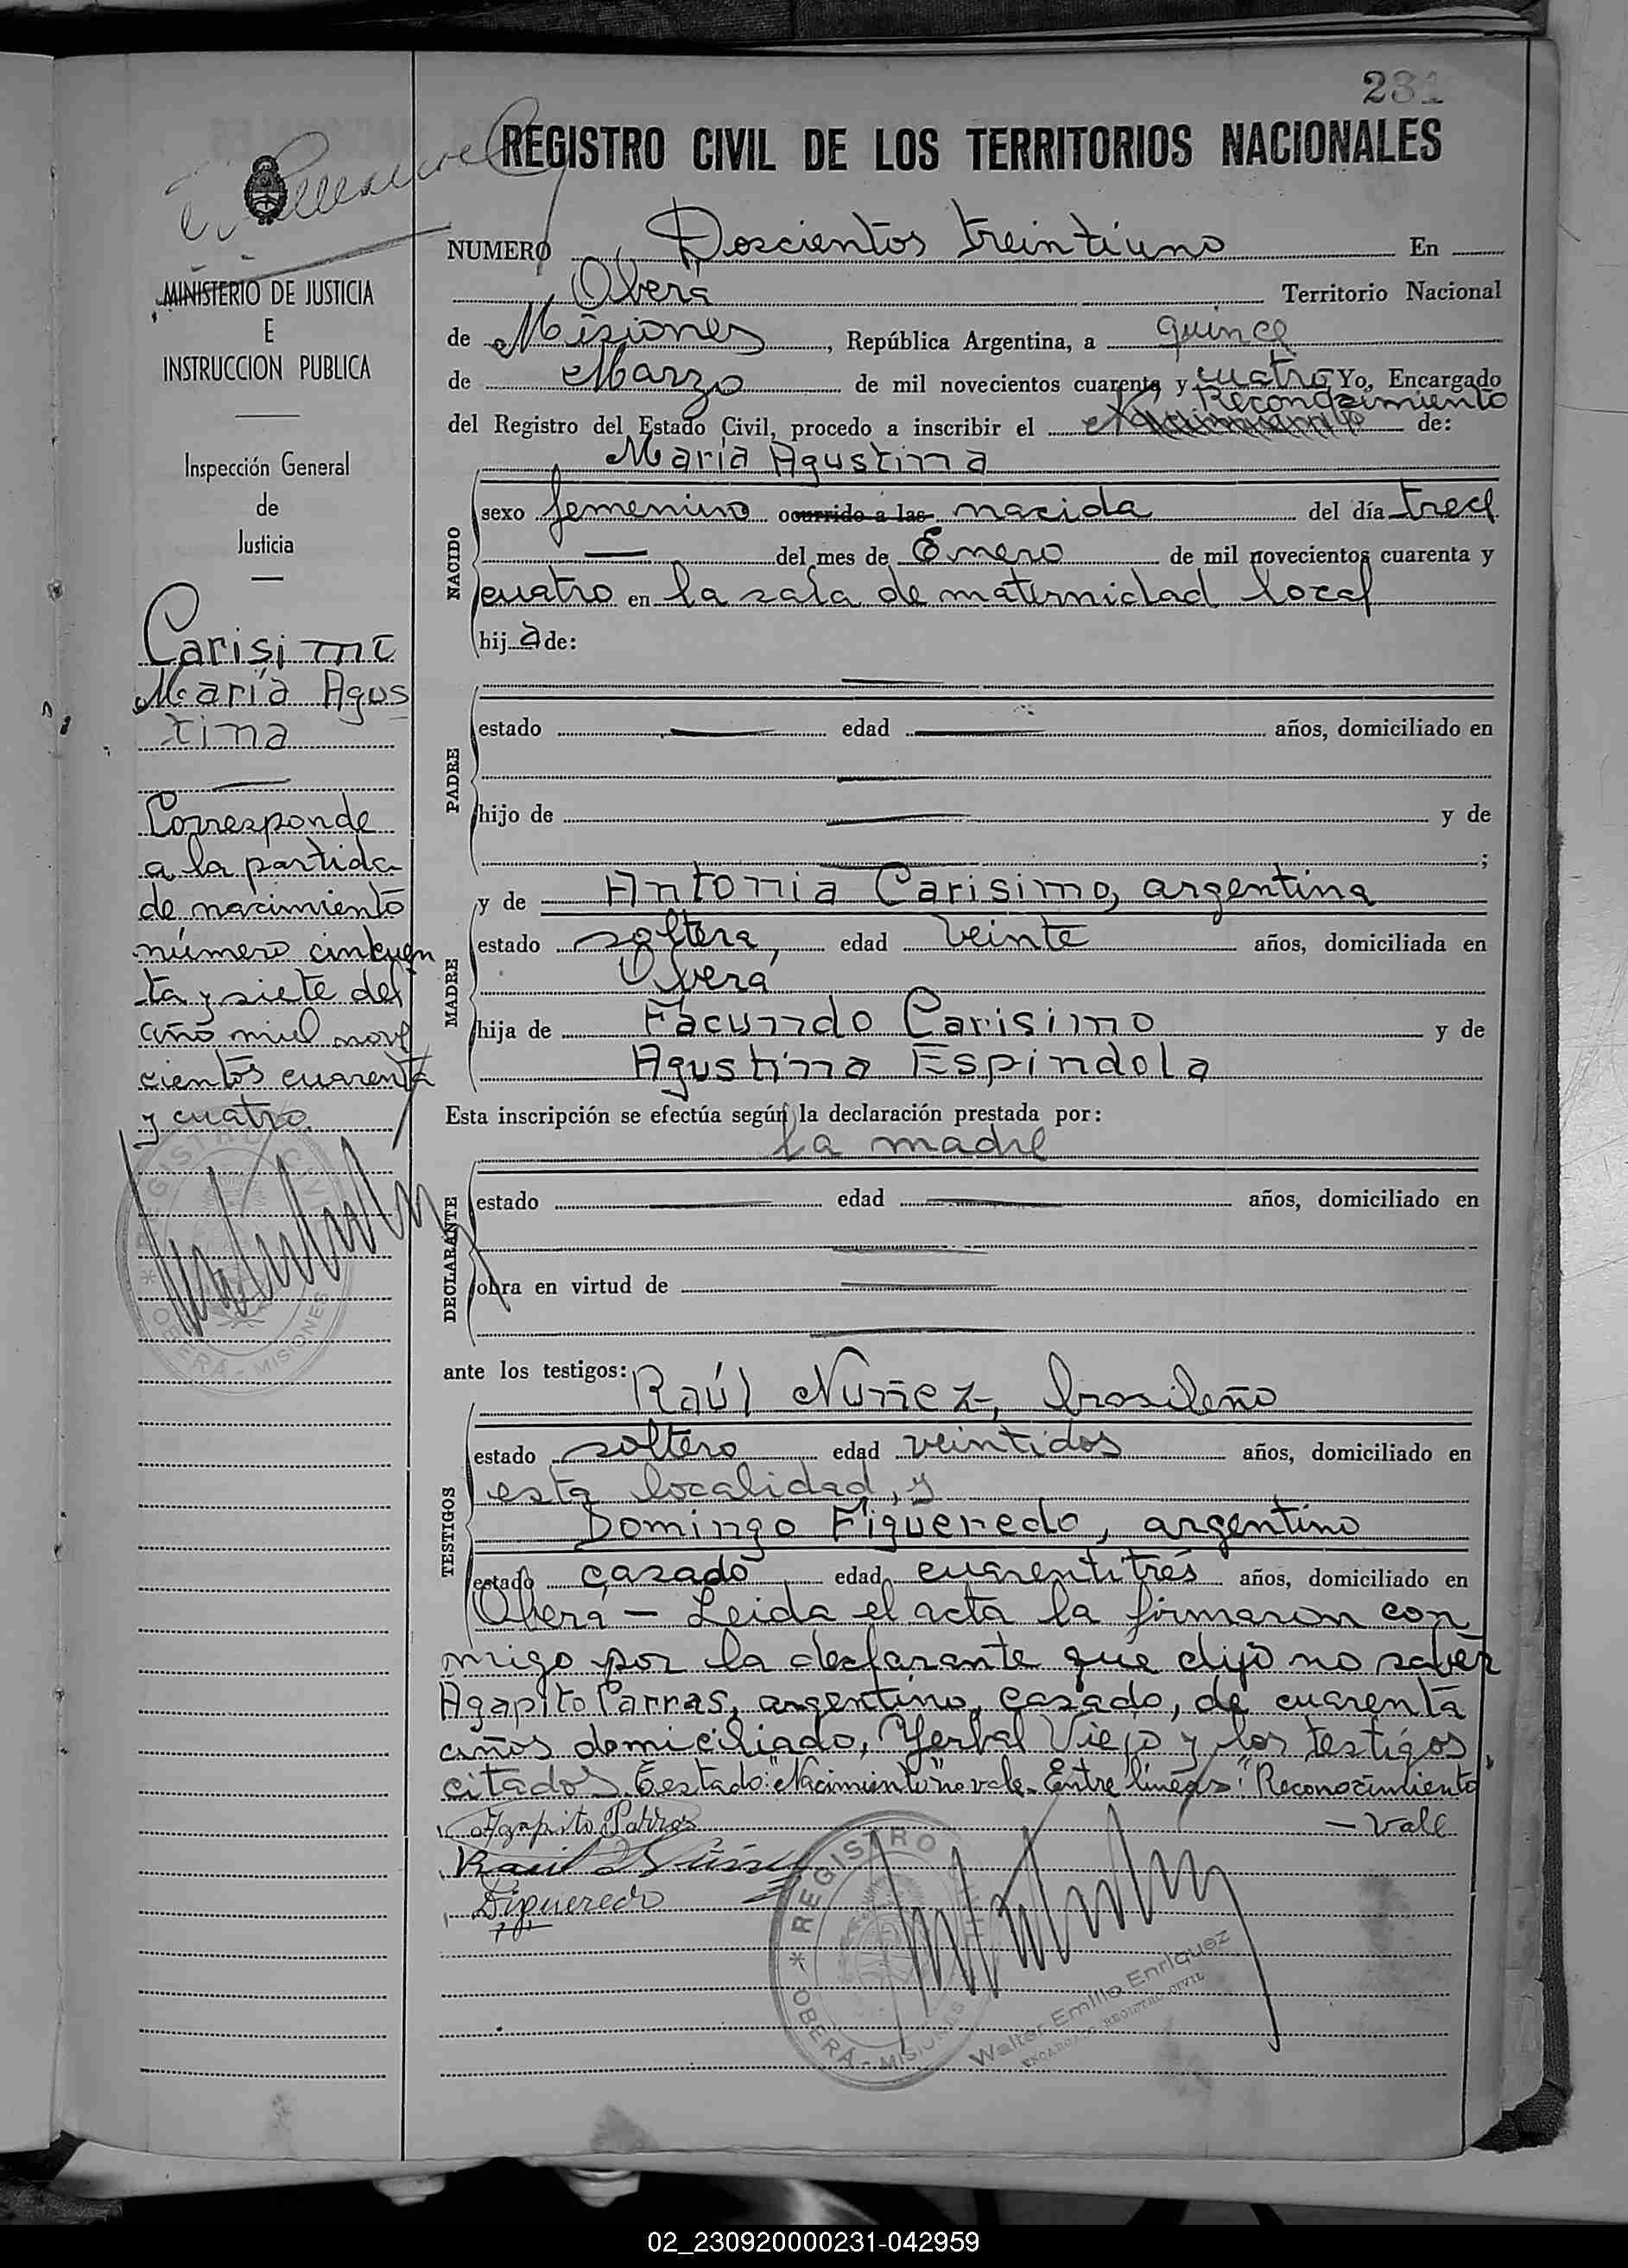 231
REGISTRO CIVIL DE LOS TERRITORIOS NACIONALES
MINISTERIO DE JUSTICIA
E
INSTRUCCION PUBLICA
Inspección General
de
Justicia
Carisimo
María Agus
tina
Corresponde
a la partida
de nacimiento
número cinkuen
ta y siete del
año miel nove
cientos cuarenta
y cuatro.
REGISTRO CIVIL
* OBERÁ - MISIONES
NUMERO Doscientos treintiuno En
Oberá Territorio Nacional
de Misiones, República Argentina, a quince
de Marzo de mil novecientos cuarenta y cuatro Yo, Encargado
Reconocimiento
del Registro del Estado Civil, procedo a inscribir el Nacimiento de:
María Agustina
NACIDO
sexo femenino ocurrido a las nacida del día trece
del mes de Enero de mil novecientos cuarenta y
cuatro en la sala de maternidad local
hij a de:
PADRE
estado edad años, domiciliado en
hijo de y de
;
MADRE
y de Antonia Carisimo, argentina
estado soltera, edad veinte años, domiciliada en
Oberá
hija de Facundo Carisimo y de
Agustina Espindola
Esta inscripción se efectúa según la declaración prestada por:
la madre
DECLARANTE
estado edad años, domiciliado en
obra en virtud de
ante los testigos: Raúl Nuñez, brasileño
TESTIGOS
estado soltero edad veintidos años, domiciliado en
esta localidad, y
Domingo Figueredo, argentino
estado casado edad cuarentitrés años, domiciliado en
Oberá - Leida el acta la firmaron con
migo por la declarante que dijo no saber
Agapito Parras, argentino, casado, de cuarenta
años domiciliado, Yerbal Viejo y los testigos
citados. Testado: "Nacimiento" no vale. Entre lineas: "Reconocimiento"
- Vale
Agapito Parras
Raul Nuñez
Figueredo
* REGISTRO
OBERÁ - MISIONES
Walter Emilio Enriquez
ENCARGADO REGISTRO CIVIL
02_230920000231-042959